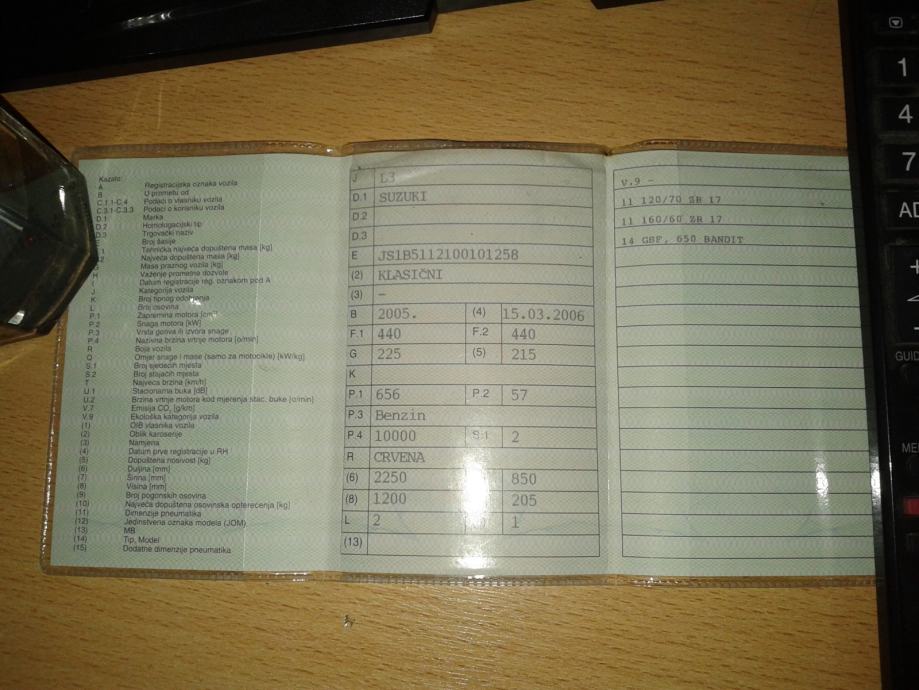 Kazalo:
A Registracijska oznaka vozila
B U prometu od
C.1.1-C.4 Podaci o vlasniku vozila
C.3.1-C.3.3 Podaci o korisniku vozila
D.1 Marka
D.2 Homologacijski tip
D.3 Trgovački naziv
Broj šasije
Tehnička najveća dopuštena masa [kg]
Najveća dopuštena masa [kg]
Masa praznog vozila [kg]
H Važenje prometne dozvole
I Datum registracije reg. oznakom pod A
J Kategorija vozila
K Broj tipnog odobrenja
L Broj osovina
P.1 Zapremina motora [cm³]
P.2 Snaga motora [kW]
P.3 Vrsta goriva ili izvora snage
P.4 Nazivna brzina vrtnje motora [o/min]
R Boja vozila
Q Omjer snage i mase (samo za motocikle) [kW/kg]
S.1 Broj sjedećih mjesta
S.2 Broj stajaćih mjesta
T Najveća brzina [km/h]
U.1 Stacionarna buka [dB]
U.2 Brzina vrtnje motora kod mjerenja stac. buke [o/min]
V.7 Emisija CO₂ [g/km]
V.9 Ekološka kategorija vozila
(1) OIB vlasnika vozila
(2) Oblik karoserije
(3) Namjena
(4) Datum prve registracije u RH
(5) Dopuštena nosivost [kg]
(6) Duljina [mm]
(7) Širina [mm]
(8) Visina [mm]
(9) Broj pogonskih osovina
(10) Najveća dopuštena osovinska opterećenja [kg]
(11) Dimenzije pneumatika
(12) Jedinstvena oznaka modela (JOM)
(13) MB
(14) Tip, Model
(15) Dodatne dimenzije pneumatika
J L3
D.1 SUZUKI
D.2
D.3
E JS1B5112100101258
(2) KLASIČNI
(3) -
B 2005. (4) 15.03.2006
F.1 440 F.2 440
G 225 (5) 215
K
P.1 656 P.2 57
P.3 Benzin
P.4 10000 S.1 2
R CRVENA
(6) 2250 850
(8) 1200 205
L 2 1
(13)
V.9 -
11 120/70 ZR 17
11 160/60 ZR 17
14 GSF, 650 BANDIT
1
4
7